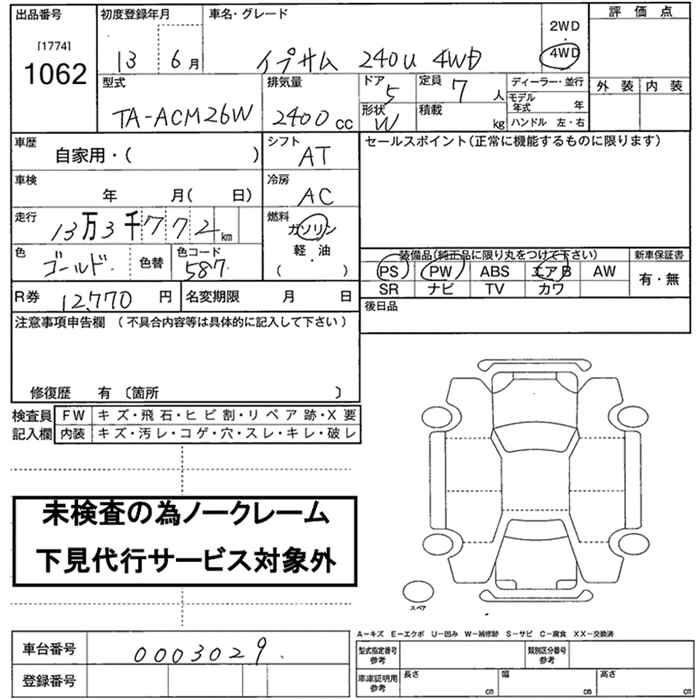 出品番号 初度登録年月 車名・グレード 2WD 評価点
[1774] ・
1062 13 6月 イプサム 240u 4WD 4WD
外装 内装
型式 排気量 ドア 定員 ディーラー・並行
5 7人 モデル年式 年
TA-ACM26W 2400cc 形状 W 積載 kg ハンドル 左・右
車歴 シフト セールスポイント(正常に機能するものに限ります)
自家用・( ) AT
車検 冷房
年 月( 日) AC
走行 燃料
13万3千772km ガソリン
軽・油
( )
色 色替 色コード 装備品(純正品に限り丸をつけて下さい) 新車保証書
ゴールド 587 PS PW ABS エアB AW 有・無
SR ナビ TV カワ
R券 12,770円 名変期限 月 日 後日品
注意事項申告欄(不具合内容等は具体的に記入して下さい)
修復歴 有〔箇所 〕
検査員 FW キズ・飛石・ヒビ割・リペア跡・X要
記入欄 内装 キズ・汚レ・コゲ・穴・スレ・キレ・破レ
未検査の為ノークレーム
下見代行サービス対象外
スペア
A-キズ E-エクボ U-凹み W-補修跡 S-サビ C-腐食 XX-交換済
車台番号 0003029 型式指定番号 参考 類別区分番号 参考
登録番号 車庫証明用 参考 長さ cm 幅 cm 高さ cm